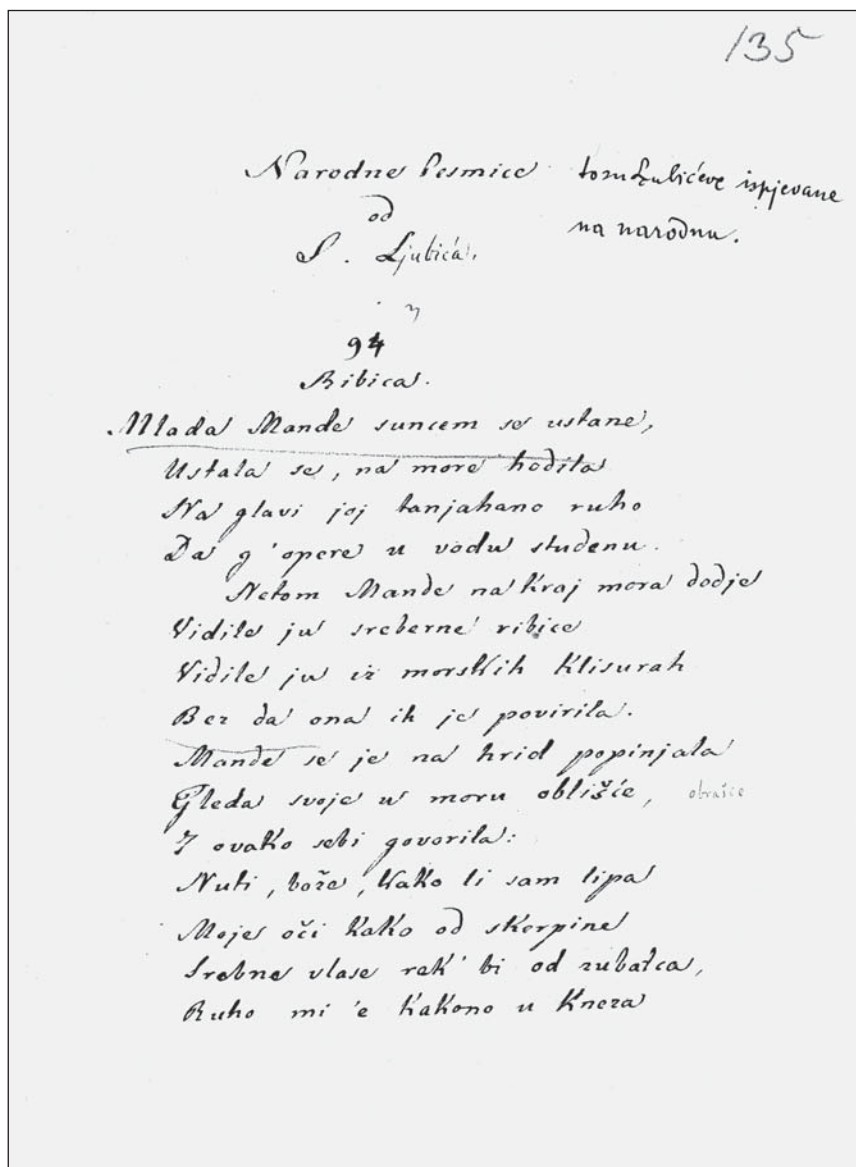 135
Narodne Pesmice
od
S. Ljubića.
to su Ljubićeve ispjevane
na narodnu.
94
Ribica.
Mlada Mande suncem se ustane,
Ustala se, na more hodila
Na glavi joj tanjahano ruho
Da g'opere u vodu studenu.
Netom Mande na kraj mora dodje
Vidile ju sreberne ribice
Vidile ju iz morskih klisurah
Bez da ona ih je povirila.
Mande se je na hrid popinjala
Gleda svoje u moru obližće, obrašce
I ovako sebi govorila:
Nuti, bože, kako li sam lipa
Moje oči kako od skerpine
Srebne vlase rek' bi od zubatca,
Ruho mi 'e kakono u Kneza